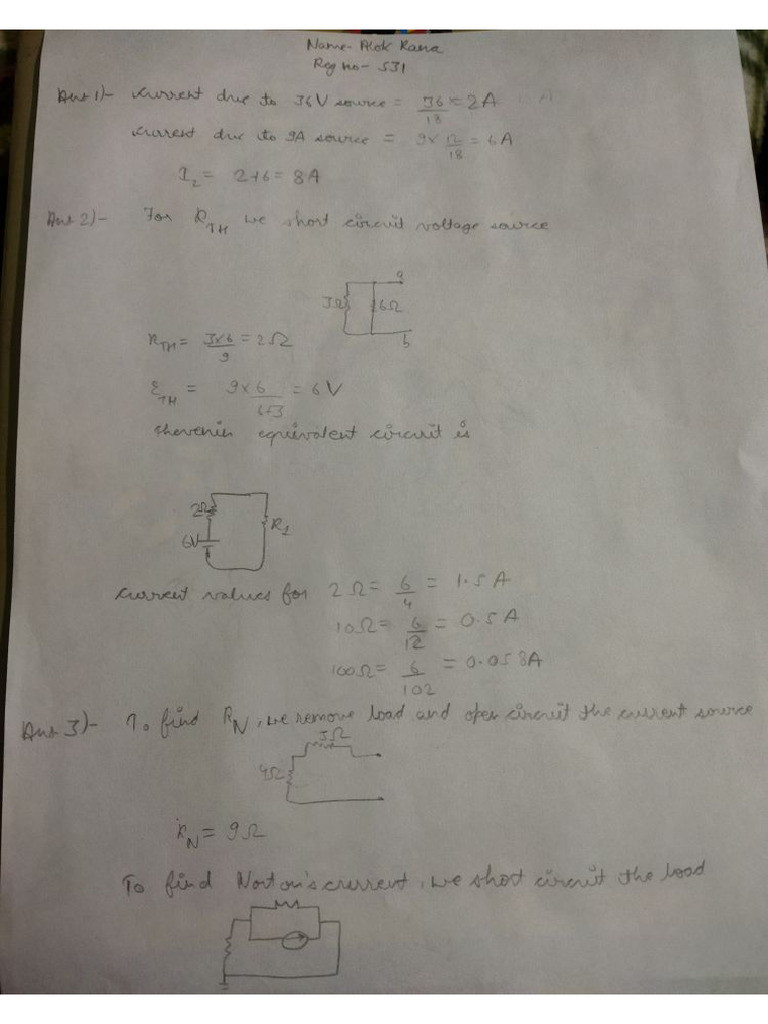 Name- Alok Rana
Reg no- 531
Ans 1)- Current due to 36V source = 36/18 = 2A
Current due to 9A source = 9 × 12/18 = 6A
I₂ = 2+6 = 8A
Ans 2)- For R_TH we short circuit voltage source
a
3Ω 6Ω
b
R_TH = 3×6/9 = 2Ω
E_TH = 9×6/6+3 = 6V
Thevenin equivalent circuit is
2Ω
R₁
6V
Current values for 2Ω = 6/4 = 1.5A
10Ω = 6/12 = 0.5A
100Ω = 6/102 = 0.058A
Ans 3)- To find R_N, we remove load and open circuit the current source
5Ω
4Ω
R_N = 9Ω
To find Norton's current, we short circuit the load